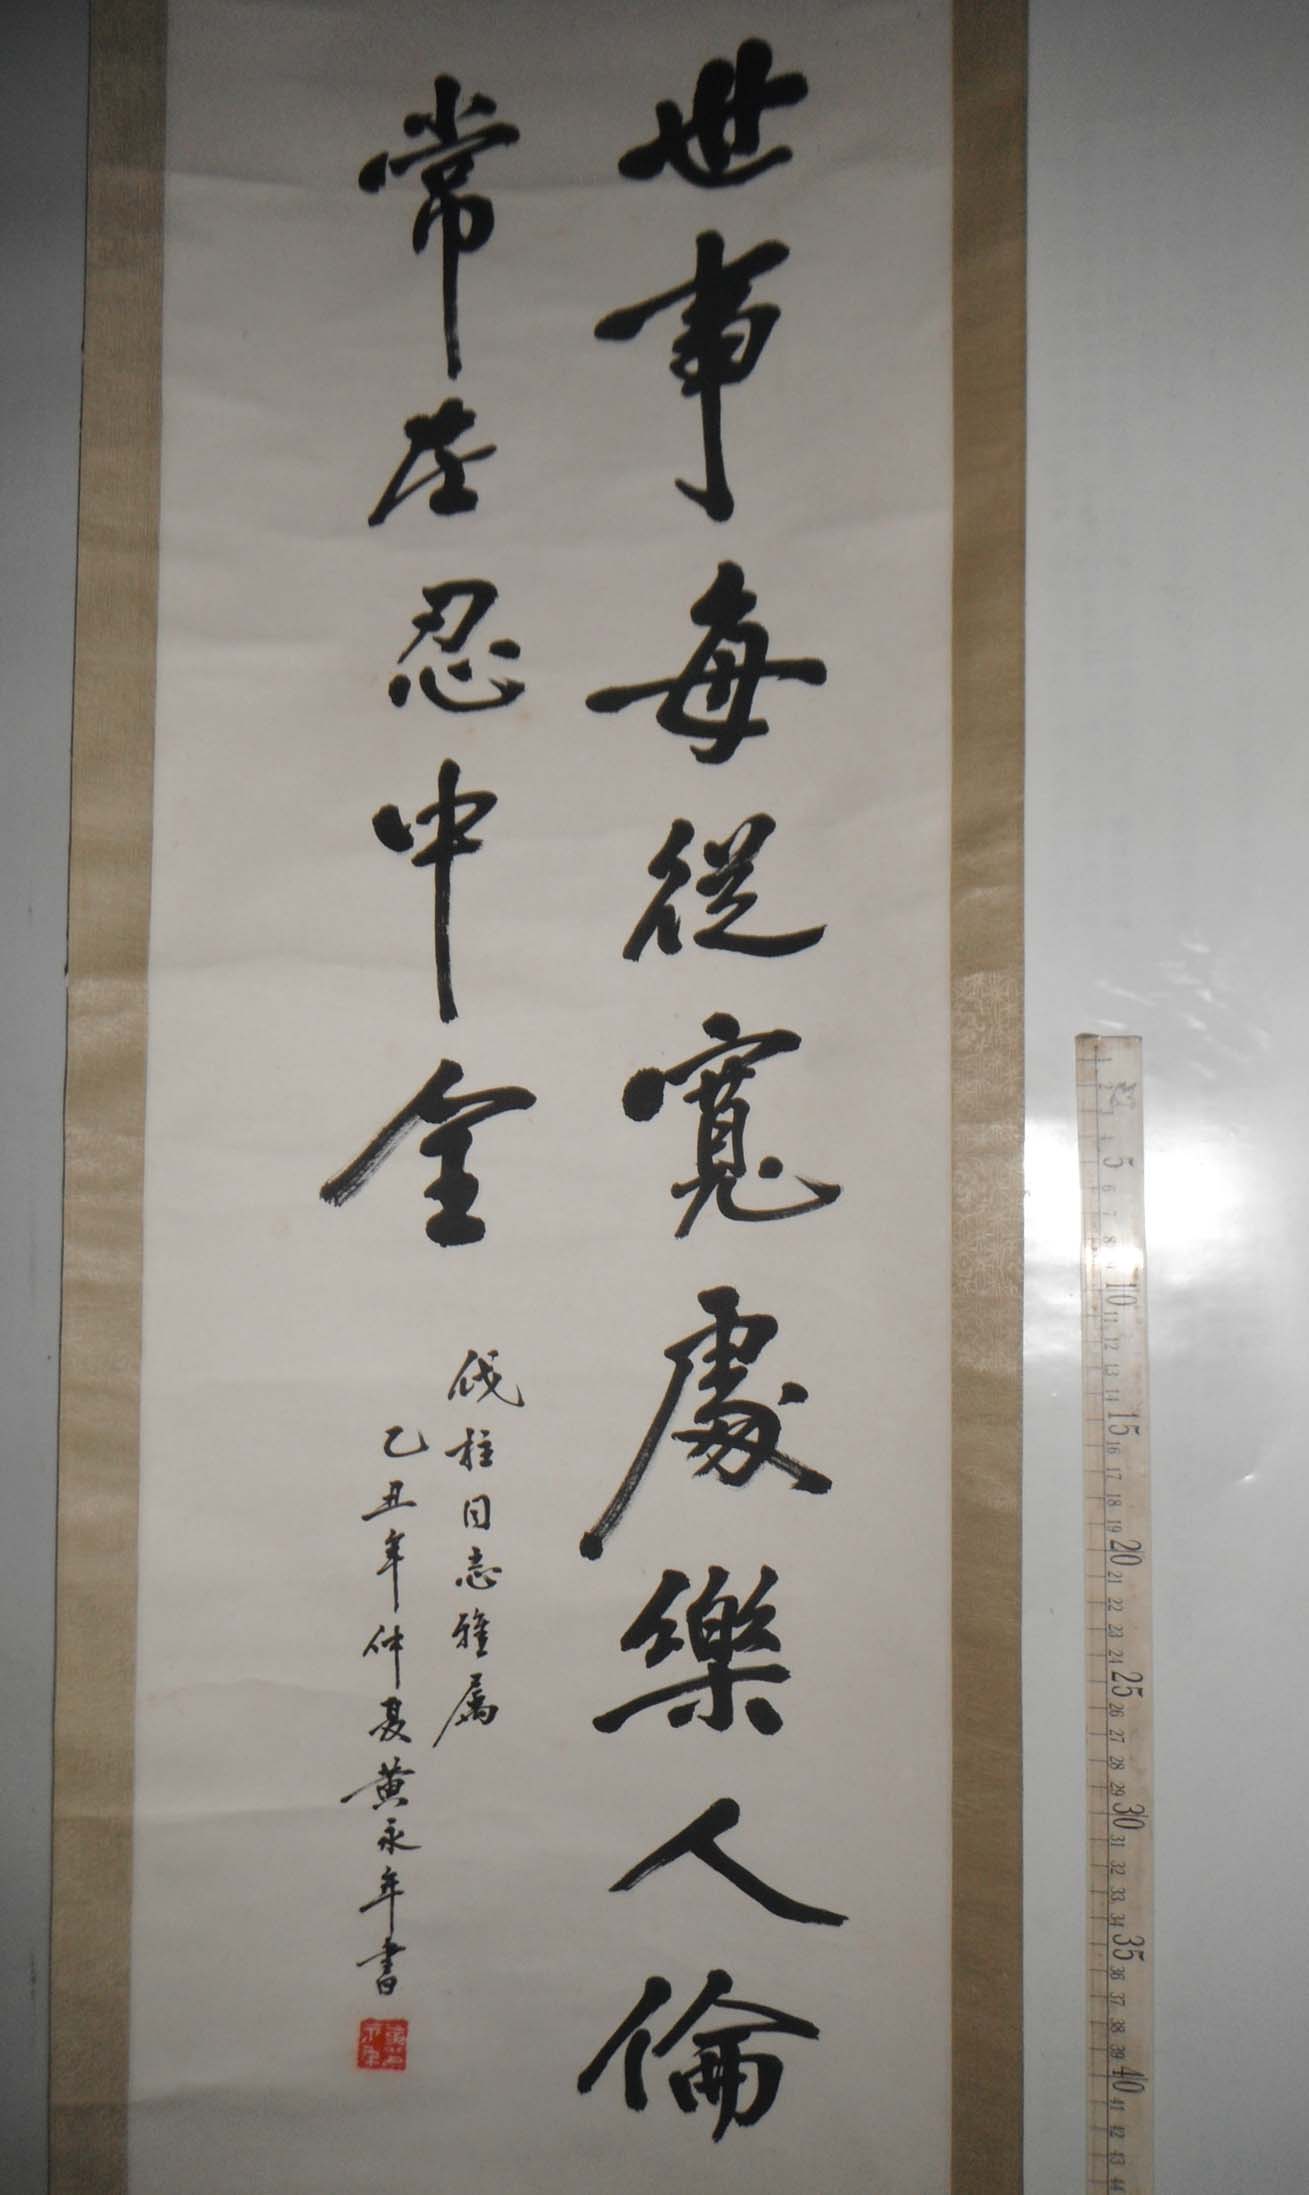 世事每從寬處樂人倫
常在忍中全
伐柱同志雅屬
乙丑年仲夏黄永年書
1 2 3 4 5 6 7 8 9 10 11 12 13 14 15 16 17 18 19 20 21 22 23 24 25 26 27 28 29 30 31 32 33 34 35 36 37 38 39 40 41 42 43 44